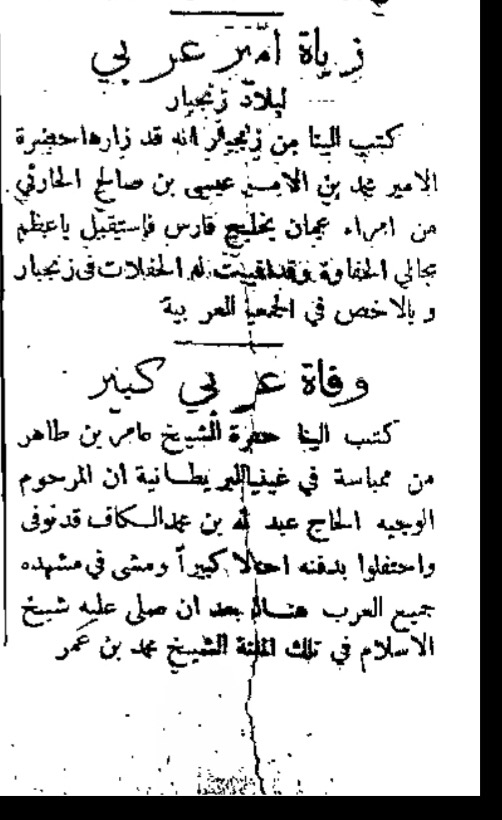 زياة امير عربي
لبلاد زنجبار
كتب الينا من زنجبار انه قد زارها حضرة
الامير محمد بن الامير عيسى بن صالح الحارثي
من امراء عمان بخليج فارس فاستقبل باعظم
مجالي الحفاوة وقد اقيمت له الحفلات في زنجبار
وبالاخص في الجمعية العربية
وفاة عربي كبير
كتب الينا حضرة الشيخ عامر بن طاهر
من ممباسة في البريطانية ان المرحوم
الوجيه الحاج عبد الله بن محمد الكاف قد توفى
واحتفلوا بدفنه احتفالا كبيراً ومشى في مشهده
جميع العرب هنالك بعد ان صلى عليه شيخ
الاسلام في تلك الشيخ محمد بن عمر